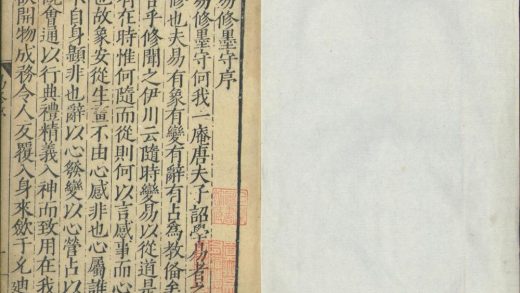 易修墨守序
易修墨守何我一庵唐夫子詔學易者之
修也夫易有象有變有辭有占為教備矣
乎修聞之伊川云隨時變易以從道是
有在時惟何隨而從則何以言感事而心
也故象安從生畫不由心感非也心屬誰
自身顯非也辭以心發變以心營占以
會通以行典禮精義入神而致用在我
開物成務令人反覆入身來歛于允迪